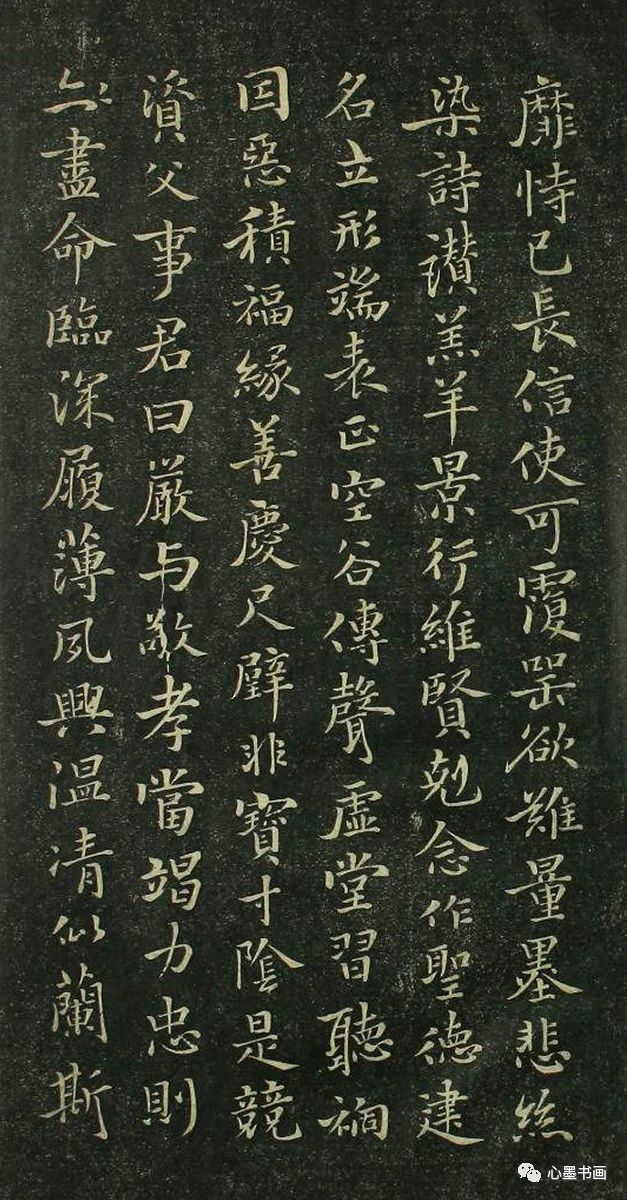 靡恃己長信使可覆器欲難量墨悲絲
染詩讃羔羊景行維賢剋念作聖德建
名立形端表正空谷傳聲虛堂習聽禍
因惡積福緣善慶尺璧非寶寸陰是競
資父事君曰嚴与敬孝當竭力忠則
盡命臨深履薄夙興温凊似蘭斯
心墨书画